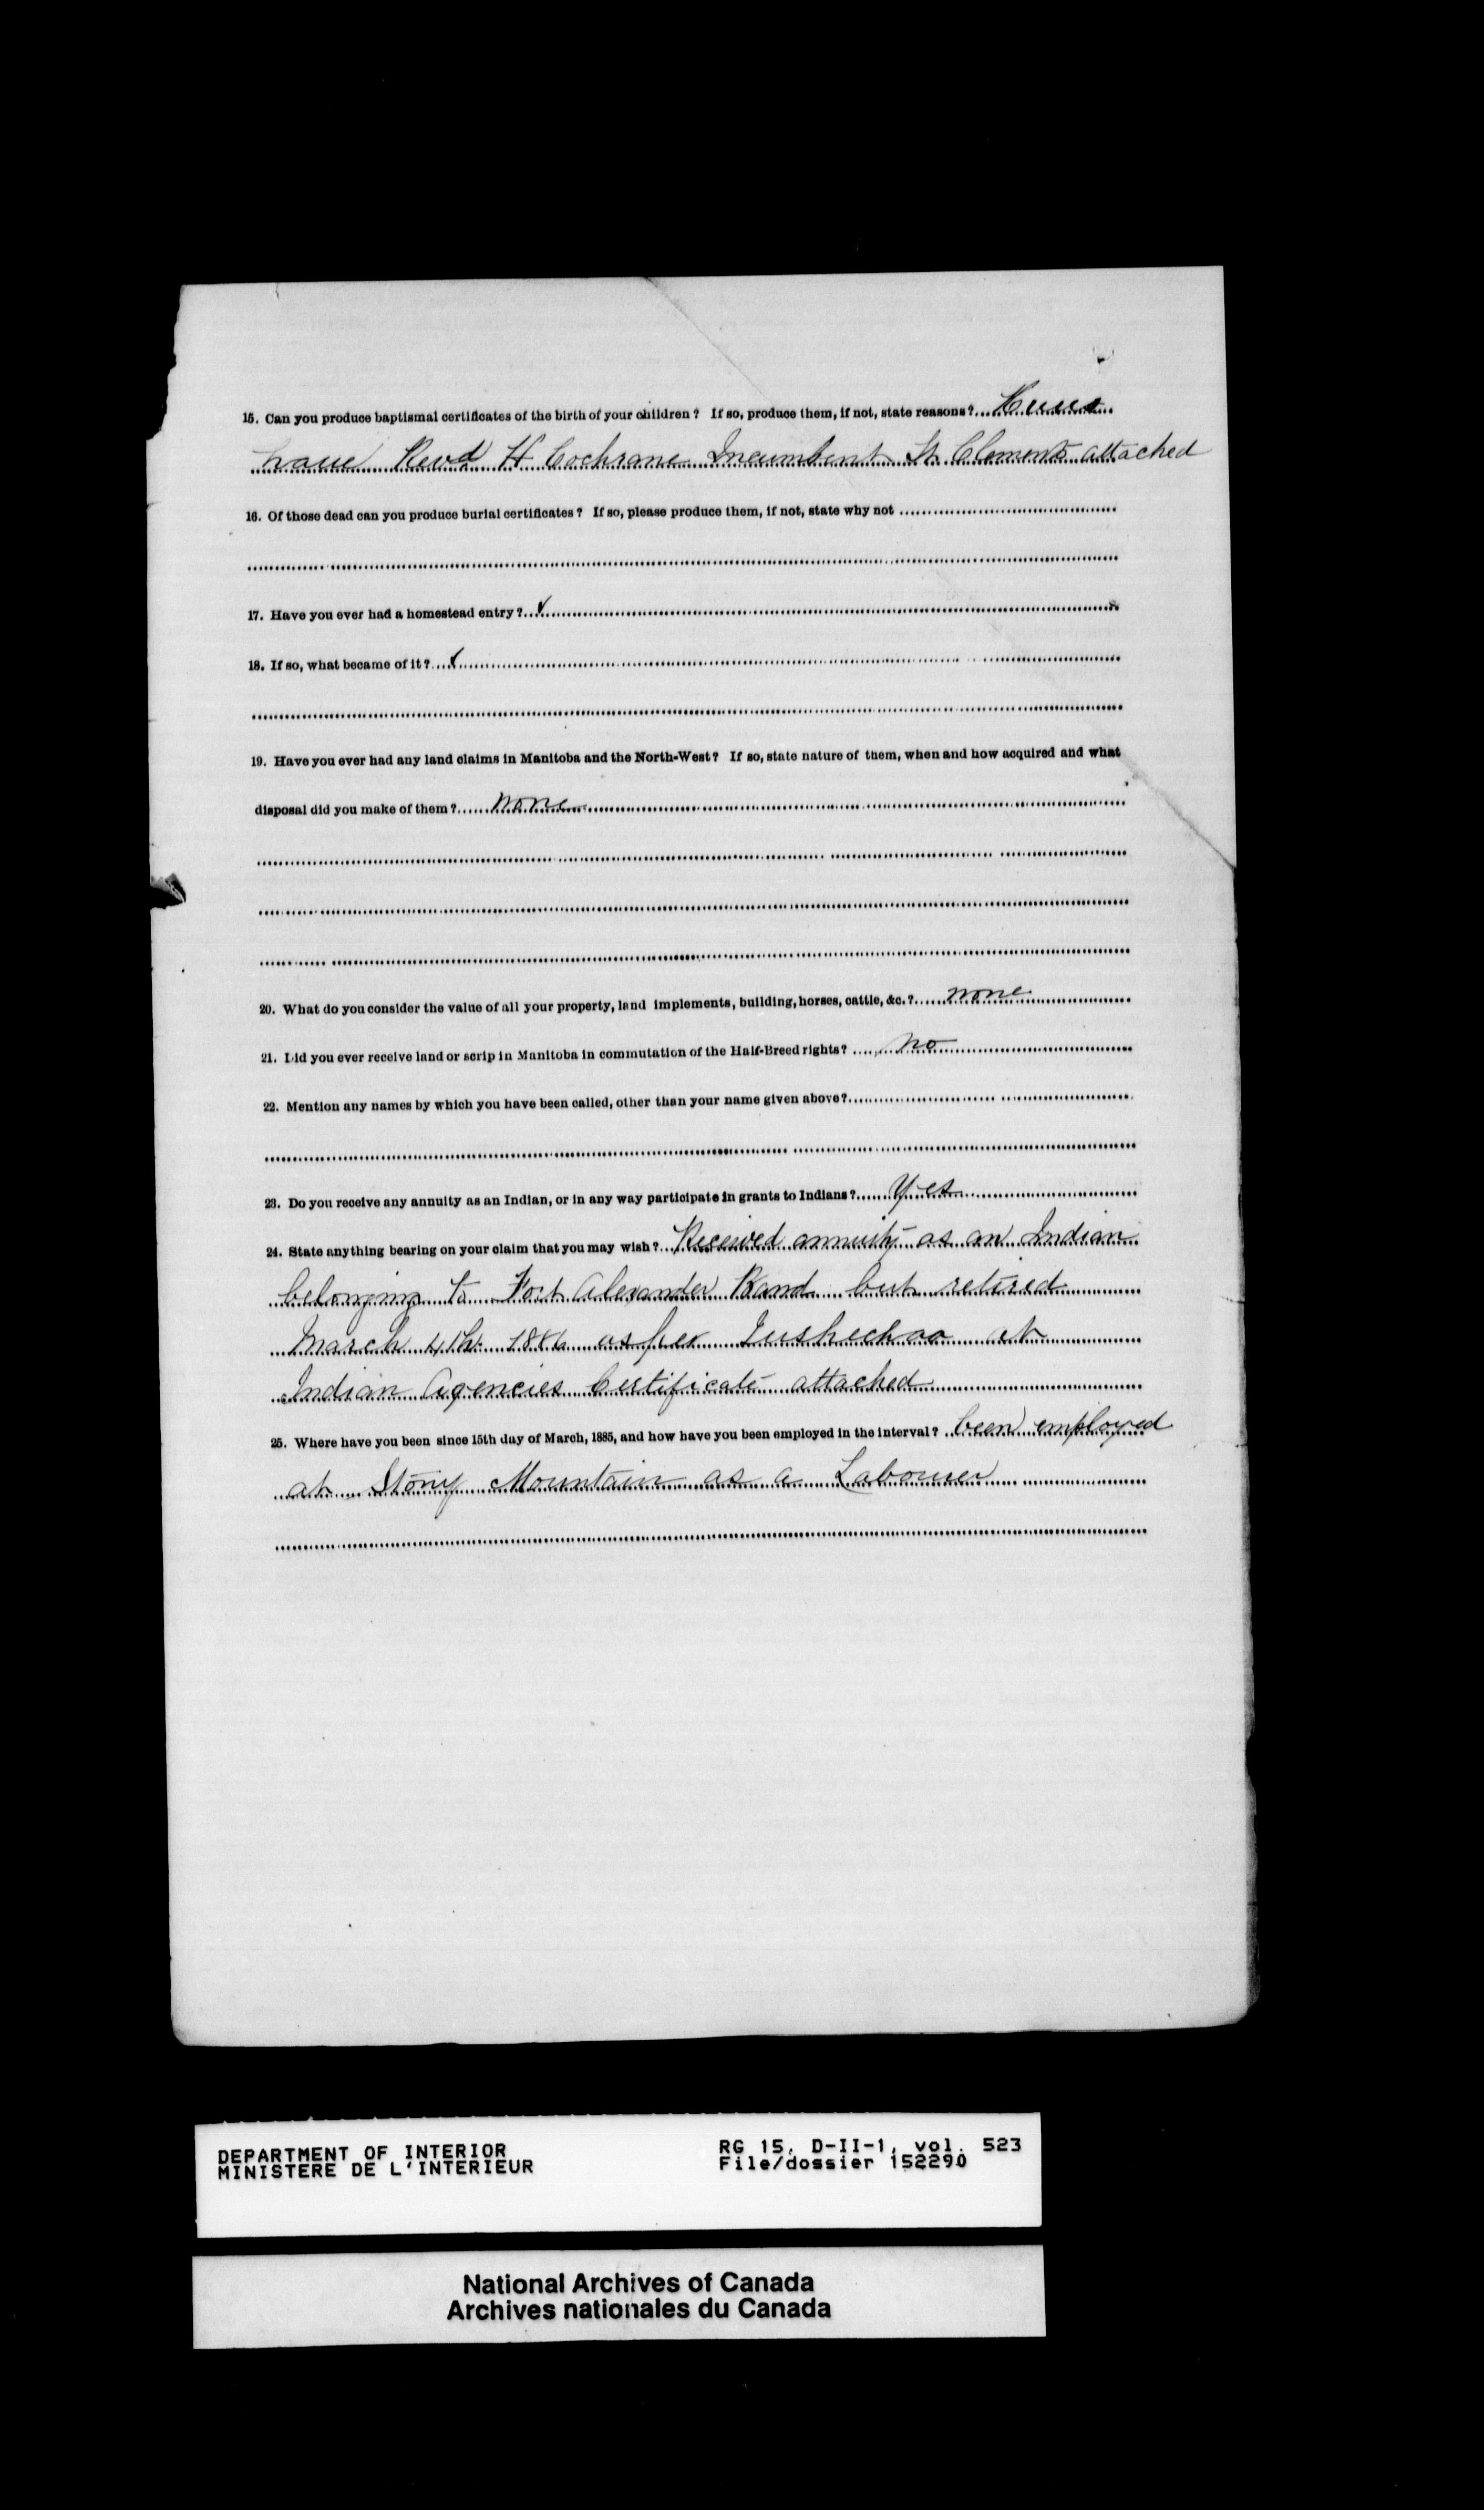 15. Can you produce baptismal certificates of the birth of your children? If so, produce them, if not, state reasons?
have Revd H Cochrane Incumbent St Clements attached
16. Of those dead can you produce burial certificates? If so, please produce them, if not, state why not
17. Have you ever had a homestead entry? ✓
18. If so, what became of it? ✓
19. Have you ever had any land claims in Manitoba and the North-West? If so, state nature of them, when and how acquired and what
disposal did you make of them? none
20. What do you consider the value of all your property, land implements, building, horses, cattle, &c.? none
21. Did you ever receive land or scrip in Manitoba in commutation of the Half-Breed rights? No
22. Mention any names by which you have been called, other than your name given above?
23. Do you receive any annuity as an Indian, or in any way participate in grants to Indians? Yes
24. State anything bearing on your claim that you may wish? Received annuity as an Indian
belonging to Fort Alexander Band but retired
March 4th 1886 as per
Indian Agencies Certificate attached
25. Where have you been since 15th day of March, 1885, and how have you been employed in the interval? been employed
at Stony Mountain as a Labourer
DEPARTMENT OF INTERIOR
MINISTERE DE L'INTERIEUR
RG 15, D-II-1, vol. 523
File/dossier 152290
National Archives of Canada
Archives nationales du Canada